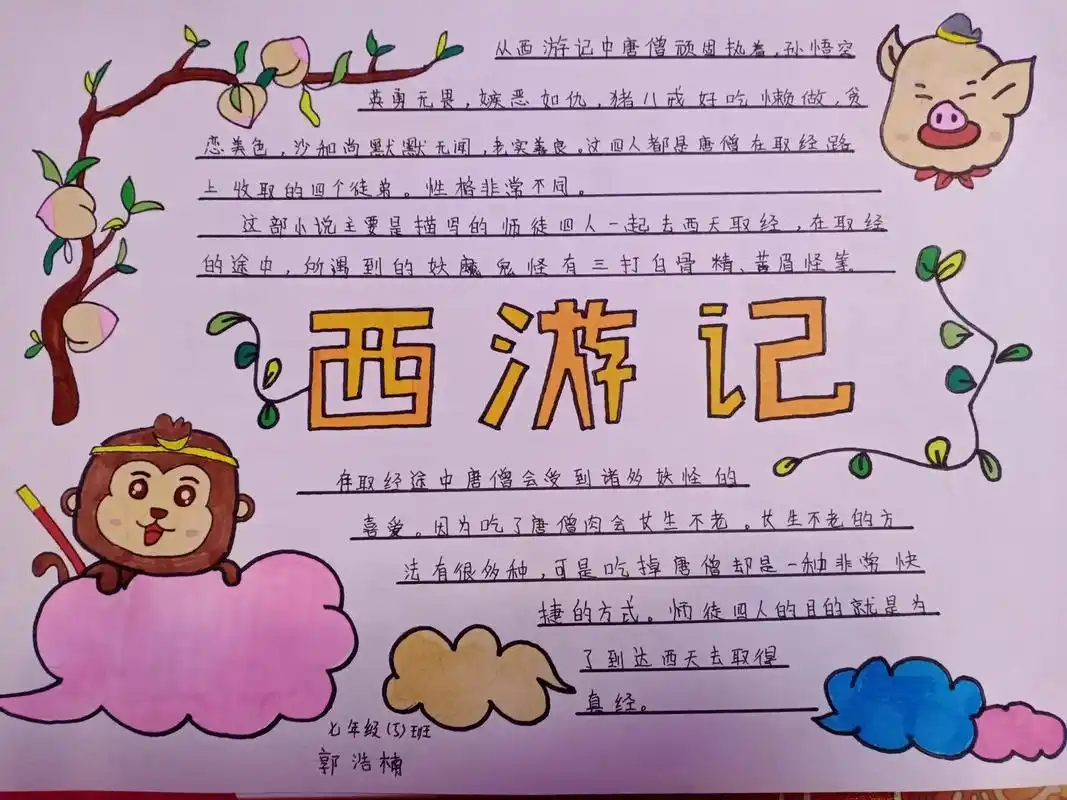 从西游记中唐僧顽固执着，孙悟空
英勇无畏，嫉恶如仇，猪八戒好吃懒做，贪
恋美色，沙和尚默默无闻，老实善良。这四人都是唐僧在取经路
上收取的四个徒弟。性格非常不同。
这部小说主要是描写的师徒四人一起去西天取经，在取经
的途中，所遇到的妖魔鬼怪有三打白骨精、黄眉怪等
西游记
在取经途中唐僧会受到诸多妖怪的
喜爱。因为吃了唐僧肉会长生不老。长生不老的方
法有很多种，可是吃掉唐僧却是一种非常快
捷的方式。师徒四人的目的就是为
了到达西天去取得
真经。
七年级(5)班
郭浩楠